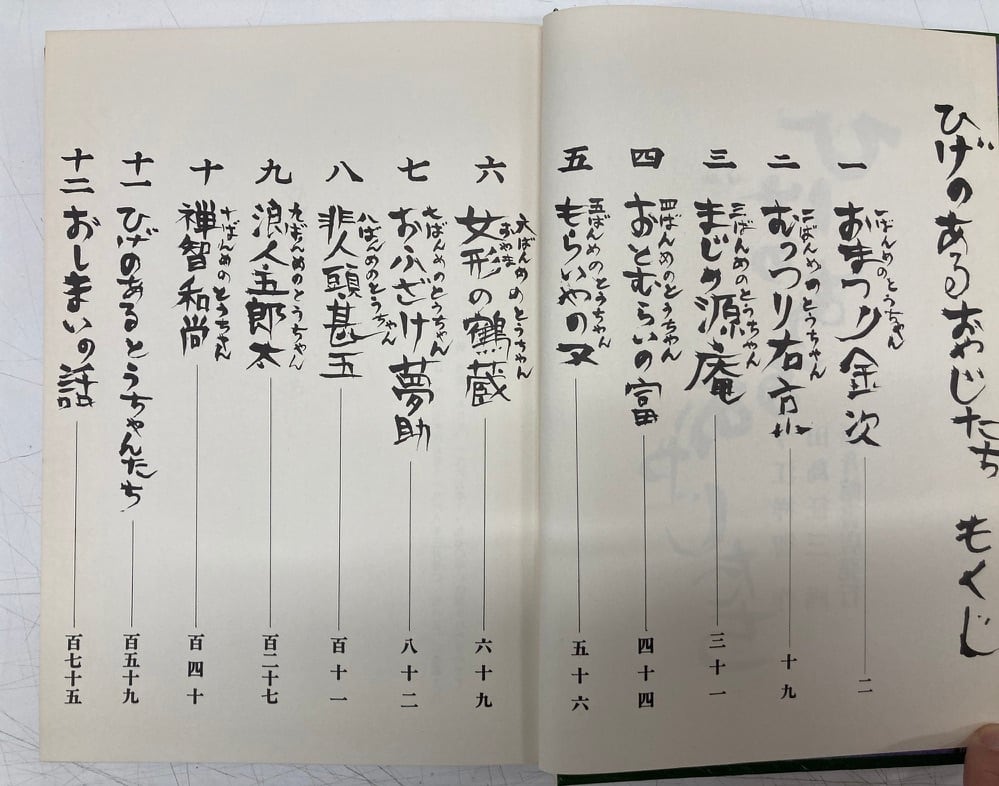 ひげのあるおやじたち　もくじ
一　おまつり金次　一ばんめのとうちゃん　二
二　むっつり右京　二ばんめのとうちゃん　十九
三　まじめ源庵　三ばんめのとうちゃん　三十一
四　おとむらいの富　四ばんめのとうちゃん　四十四
五　もらいやの又　五ばんめのとうちゃん　五十六
六　女形の鶴蔵　おやま　六ばんめのとうちゃん　六十九
七　おふざけ夢助　七ばんめのとうちゃん　八十二
八　非人頭甚五　八ばんめのとうちゃん　百十一
九　浪人五郎太　九ばんめのとうちゃん　百二十七
十　禅智和尚　十ばんめのとうちゃん　百四十
十一　ひげのあるとうちゃんたち　百五十九
十二　おしまいの話　百七十五